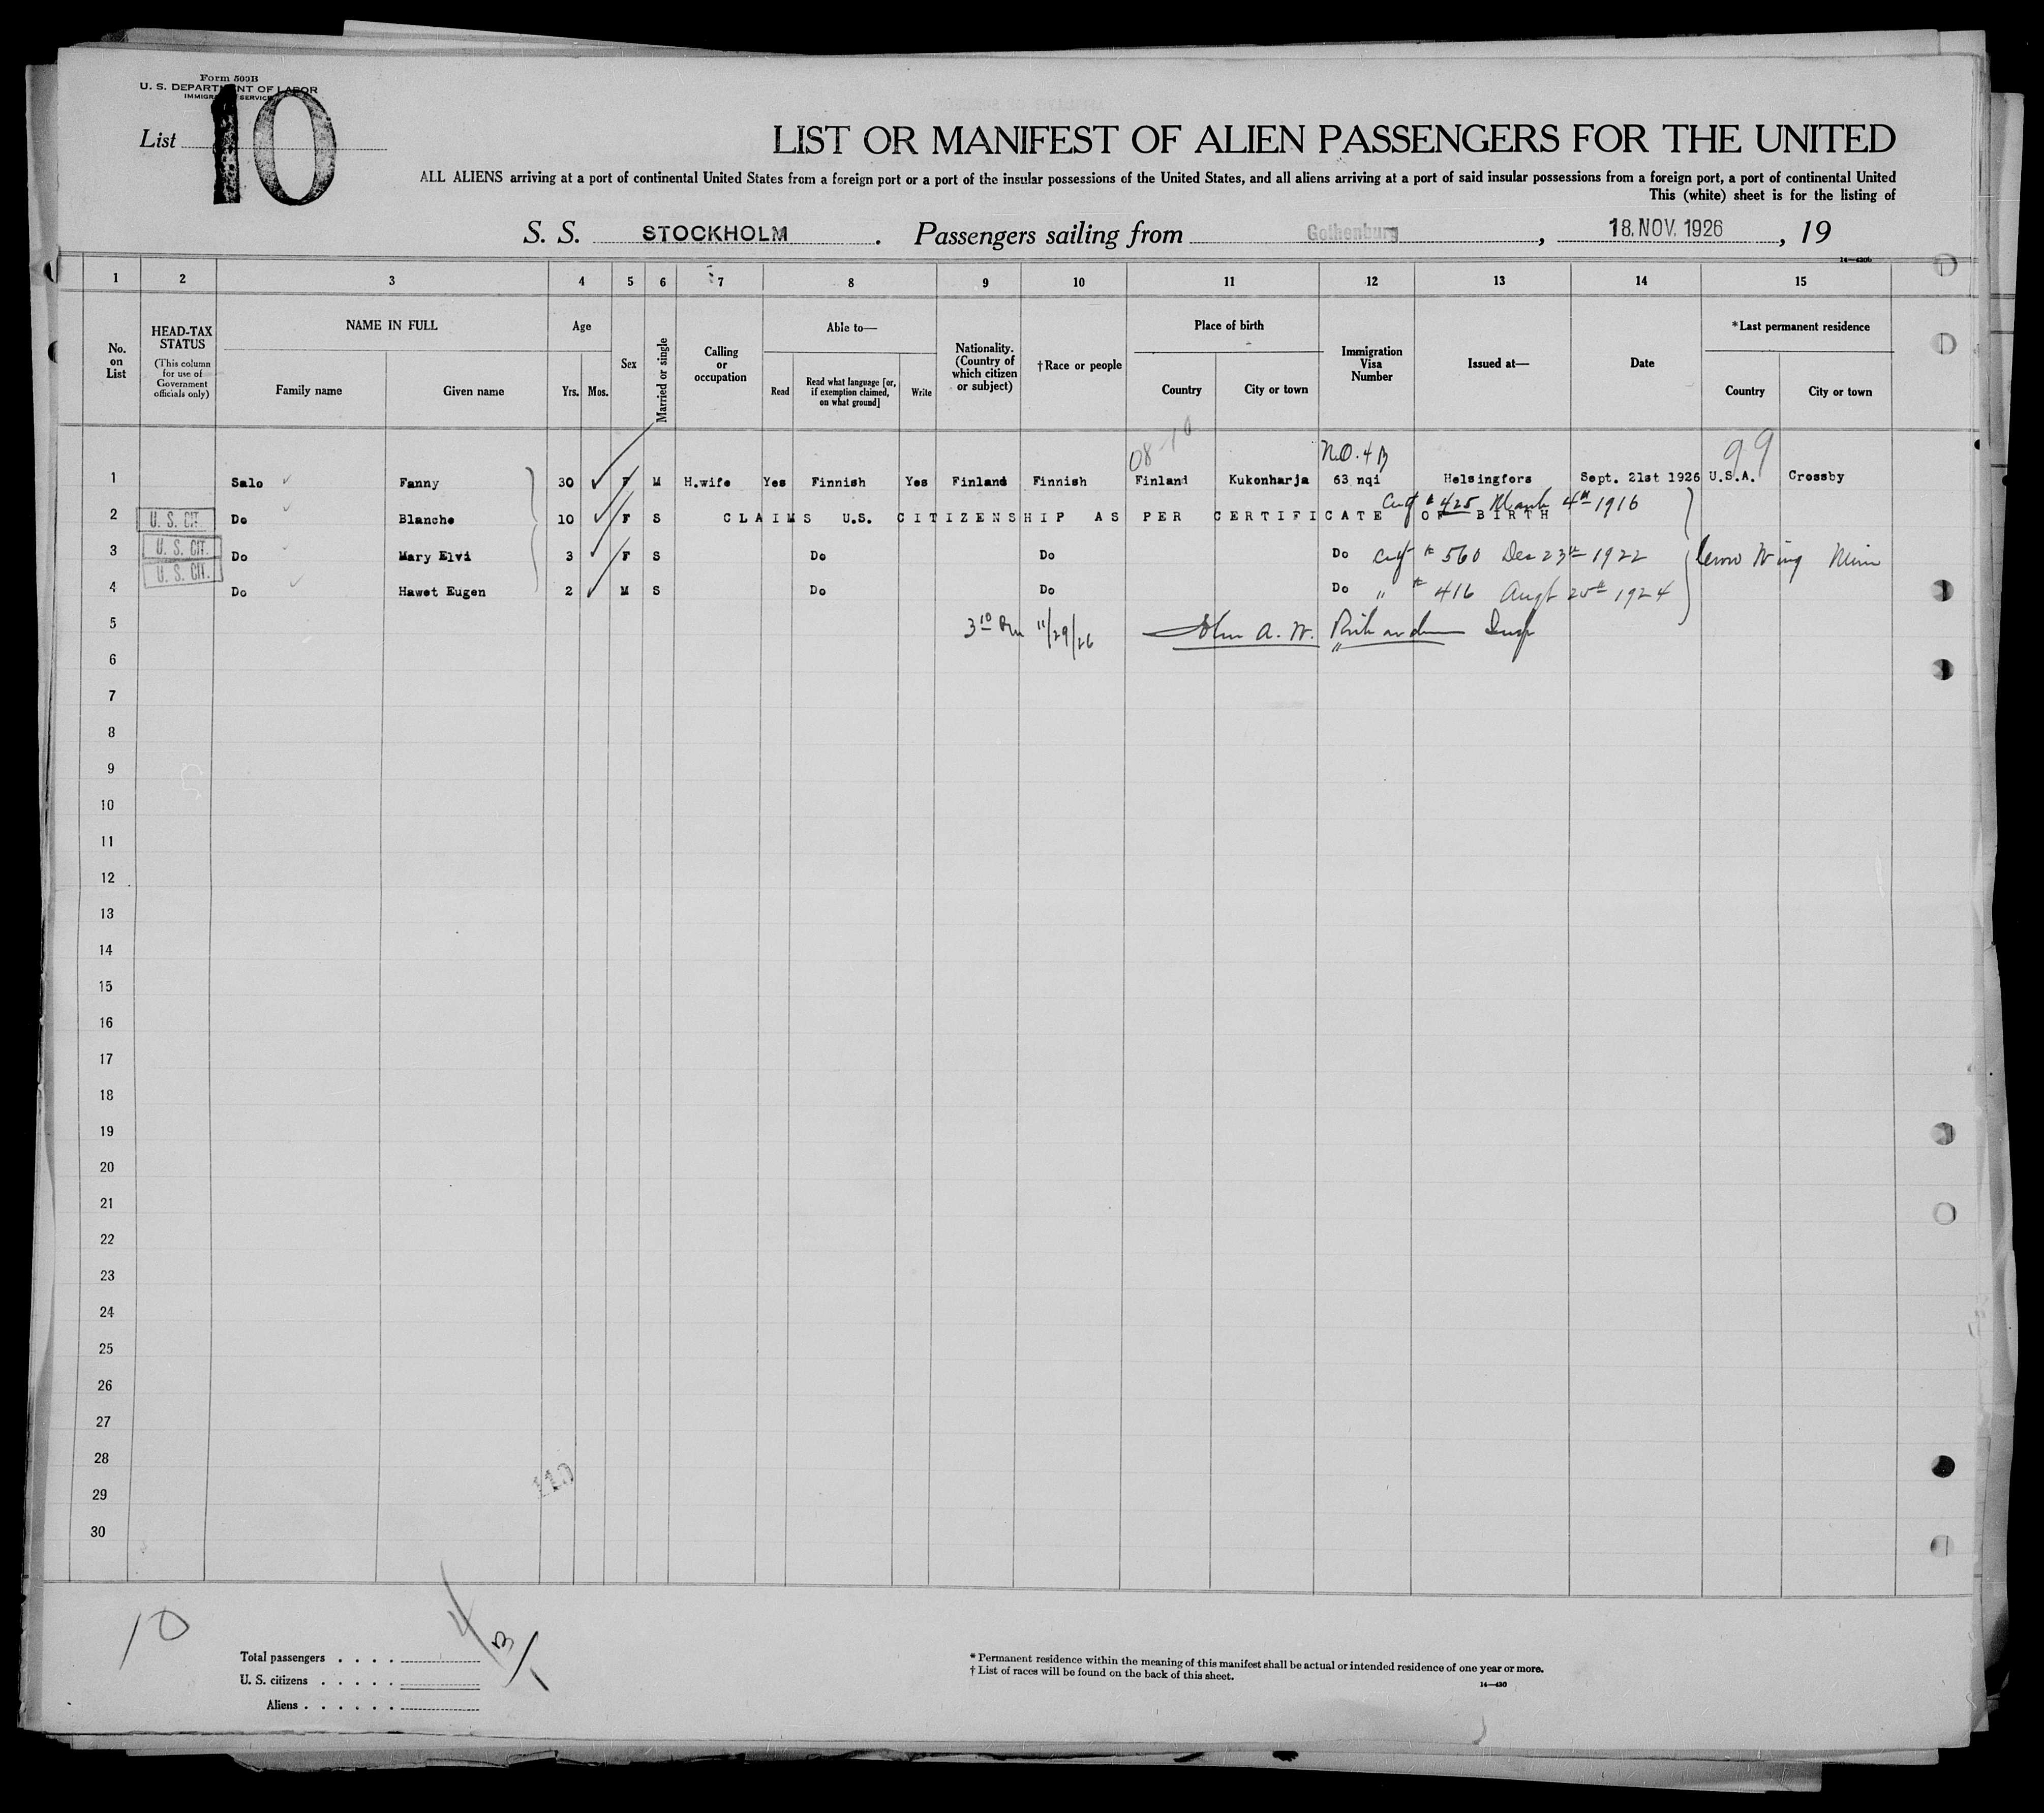 Form 500B
U. S. DEPARTMENT OF LABOR
IMMIGRATION SERVICE
List 10
LIST OR MANIFEST OF ALIEN PASSENGERS FOR THE UNITED
ALL ALIENS arriving at a port of continental United States from a foreign port or a port of the insular possessions of the United States, and all aliens arriving at a port of said insular possessions from a foreign port, a port of continental United
This (white) sheet is for the listing of
S. S. STOCKHOLM. Passengers sailing from Gothenburg, 18. NOV. 1926, 19
1 2 3 4 5 6 7 8 9 10 11 12 13 14 15
No. on List
HEAD-TAX STATUS
(This column for use of Government officials only)
NAME IN FULL
Family name Given name
Age
Yrs. Mos.
Sex
Married or single
Calling or occupation
Able to—
Read
Read what language [or, if exemption claimed, on what ground]
Write
Nationality. (Country of which citizen or subject)
†Race or people
Place of birth
Country City or town
Immigration Visa Number
Issued at—
Date
*Last permanent residence
Country City or town
08-10 N.O. 4 B 99
1 Salo Fanny 30 F M H.wife Yes Finnish Yes Finland Finnish Finland Kukonharja 63 nqi Helsingfors Sept. 21st 1926 U.S.A. Crossby
2 U. S. CIT. Do Blanche 10 F S CLAIMS U.S. CITIZENSHIP AS PER CERTIFICATE OF BIRTH # 425 March 4th 1916
3 U. S. CIT. Do Mary Elvi 3 F S Do Do Do # 560 Dec 23rd 1922 Crow Wing Minn
4 U. S. CIT. Do Hawet Eugen 2 M S Do Do Do " # 416 Augt 25th 1924
5 11/29/26 John A. W. Richardson Insp
6
7
8
9
10
11
12
13
14
15
16
17
18
19
20
21
22
23
24
25
26
27
28
29
30
110
10
Total passengers
U. S. citizens
Aliens
* Permanent residence within the meaning of this manifest shall be actual or intended residence of one year or more.
† List of races will be found on the back of this sheet.
14—430